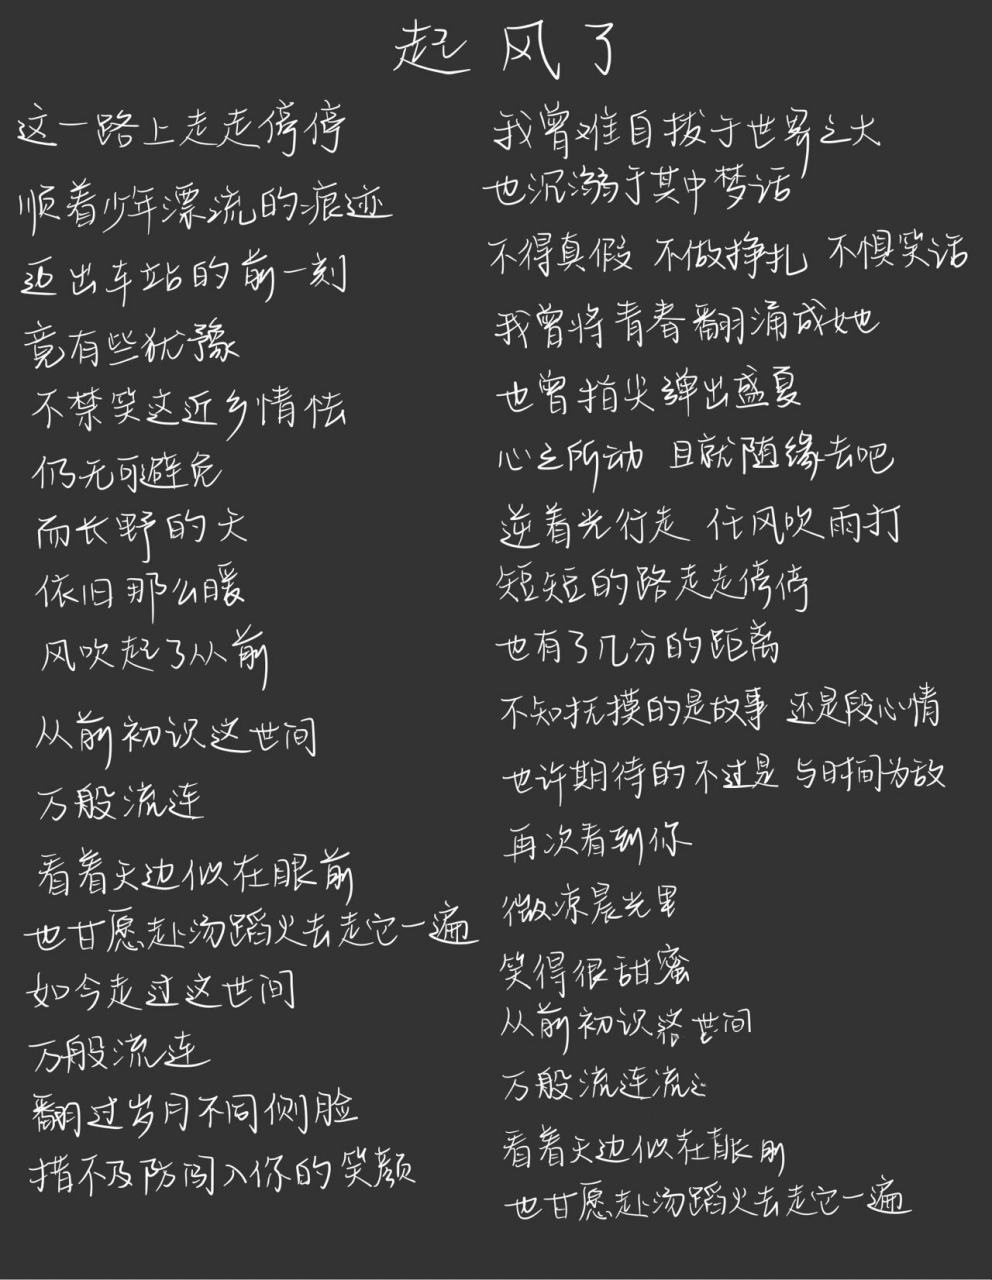 起风了
这一路上走走停停
顺着少年漂流的痕迹
迈出车站的前一刻
竟有些犹豫
不禁笑这近乡情怯
仍无可避免
而长野的天
依旧那么暖
风吹起了从前
从前初识这世间
万般流连
看着天边似在眼前
也甘愿赴汤蹈火去走它一遍
如今走过这世间
万般流连
翻过岁月不同侧脸
措不及防闯入你的笑颜
我曾难自拔于世界之大
也沉溺于其中梦话
不得真假 不做挣扎 不惧笑话
我曾将青春翻涌成她
也曾指尖弹出盛夏
心之所动 且就随缘去吧
逆着光行走 任风吹雨打
短短的路走走停停
也有了几分的距离
不知抚摸的是故事 还是段心情
也许期待的不过是 与时间为敌
再次看到你
微凉晨光里
笑得很甜蜜
从前初识 世间
万般流连流
看着天边似在眼前
也甘愿赴汤蹈火去走它一遍